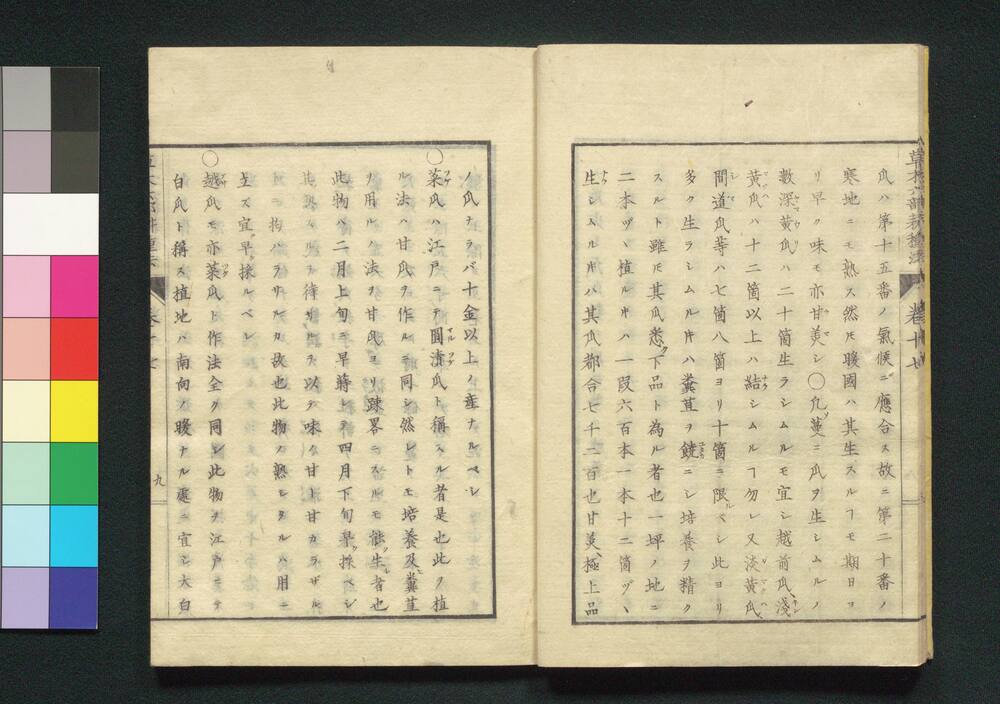 草木六部耕種法 卷十七
瓜ハ第十五番ノ氣候ニ應合ス故ニ第二十番ノ
寒地ニモ熟ス然𪜈暖國ハ其生スルヿモ期日ヨ
リ早ク味モ亦甘美シ〇凢蔓ニ瓜ヲ生シムルノ
數深黄瓜ハ二十箇生ラシムルモ宜シ越前瓜淺
黄瓜ハ十二箇以上ハ結シムルヿ勿レ又淡黄瓜
間道瓜等ハ七箇八箇ヨリ十箇ニ限ルベシ此ヨリ
多ク生ラシムル𪜈ハ糞苴ヲ饒ニシ培養ヲ精ク
スルト雖𪜈其瓜悉ク下品ト為ル者也一坪ノ地ニ
二本ヅヽ植ル𪜈ハ一段六百本一本十二箇ヅヽ
生シムル𪜈ハ其瓜都合七千二百也甘美極上品
ノ瓜ナラバ十金以上ノ産ナルベシ
〇菜瓜ハ江戸ニテ圓漬瓜ト稱スル者是也此ヲ植
ル法ハ甘瓜ヲ作ルニ同シ然レトモ培養及ヒ糞苴
ヲ用ルノ法ヲ甘瓜ヨリ踈畧ニスルモ能生ル者也
此物ハ二月上旬ニ早蒔シテ四月下旬早ク採ベシ
其熟スルヲ待サルヲ以テ味ノ甘ト甘カラザル
ニ拘ハラサルカ故也此物ノ熟シタルハ用ニ
立ズ宜早ク採ルベシ
〇越瓜モ亦菜瓜ト作法全ク同シ此物ヲ江戸ニテ
白瓜ト稱ス植地ハ南向ノ暖ナル處ニ宜シ大白
九